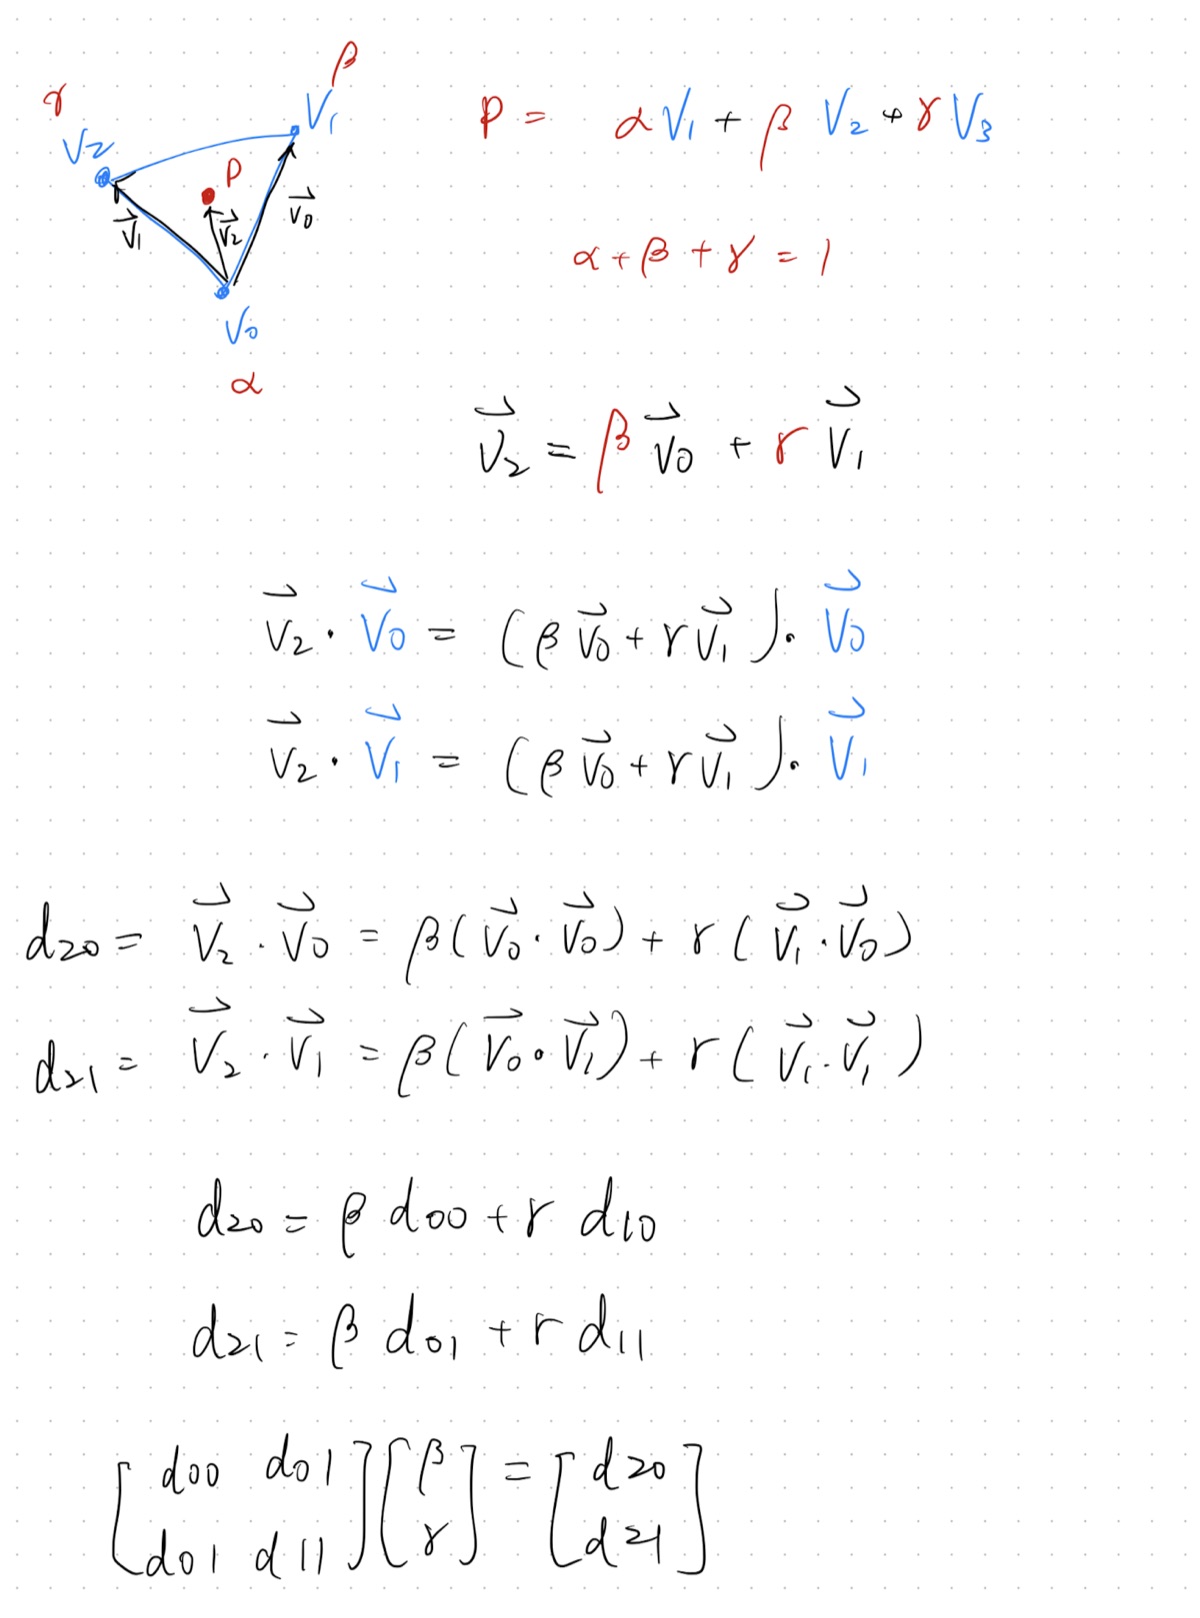 β
γ
V₁
V₂
P
v⃗₁
v⃗₂
v⃗₀
V₀
α
P = αV₁ + βV₂ + γV₃
α + β + γ = 1
v⃗₂ = βv⃗₀ + γv⃗₁
v⃗₂ · v⃗₀ = (βv⃗₀ + γv⃗₁) · v⃗₀
v⃗₂ · v⃗₁ = (βv⃗₀ + γv⃗₁) · v⃗₁
d₂₀ = v⃗₂ · v⃗₀ = β(v⃗₀ · v⃗₀) + γ(v⃗₁ · v⃗₀)
d₂₁ = v⃗₂ · v⃗₁ = β(v⃗₀ · v⃗₁) + γ(v⃗₁ · v⃗₁)
d₂₀ = β d₀₀ + γ d₁₀
d₂₁ = β d₀₁ + γ d₁₁
[d₀₀ d₀₁] [β] = [d₂₀]
[d₀₁ d₁₁] [γ] [d₂₁]